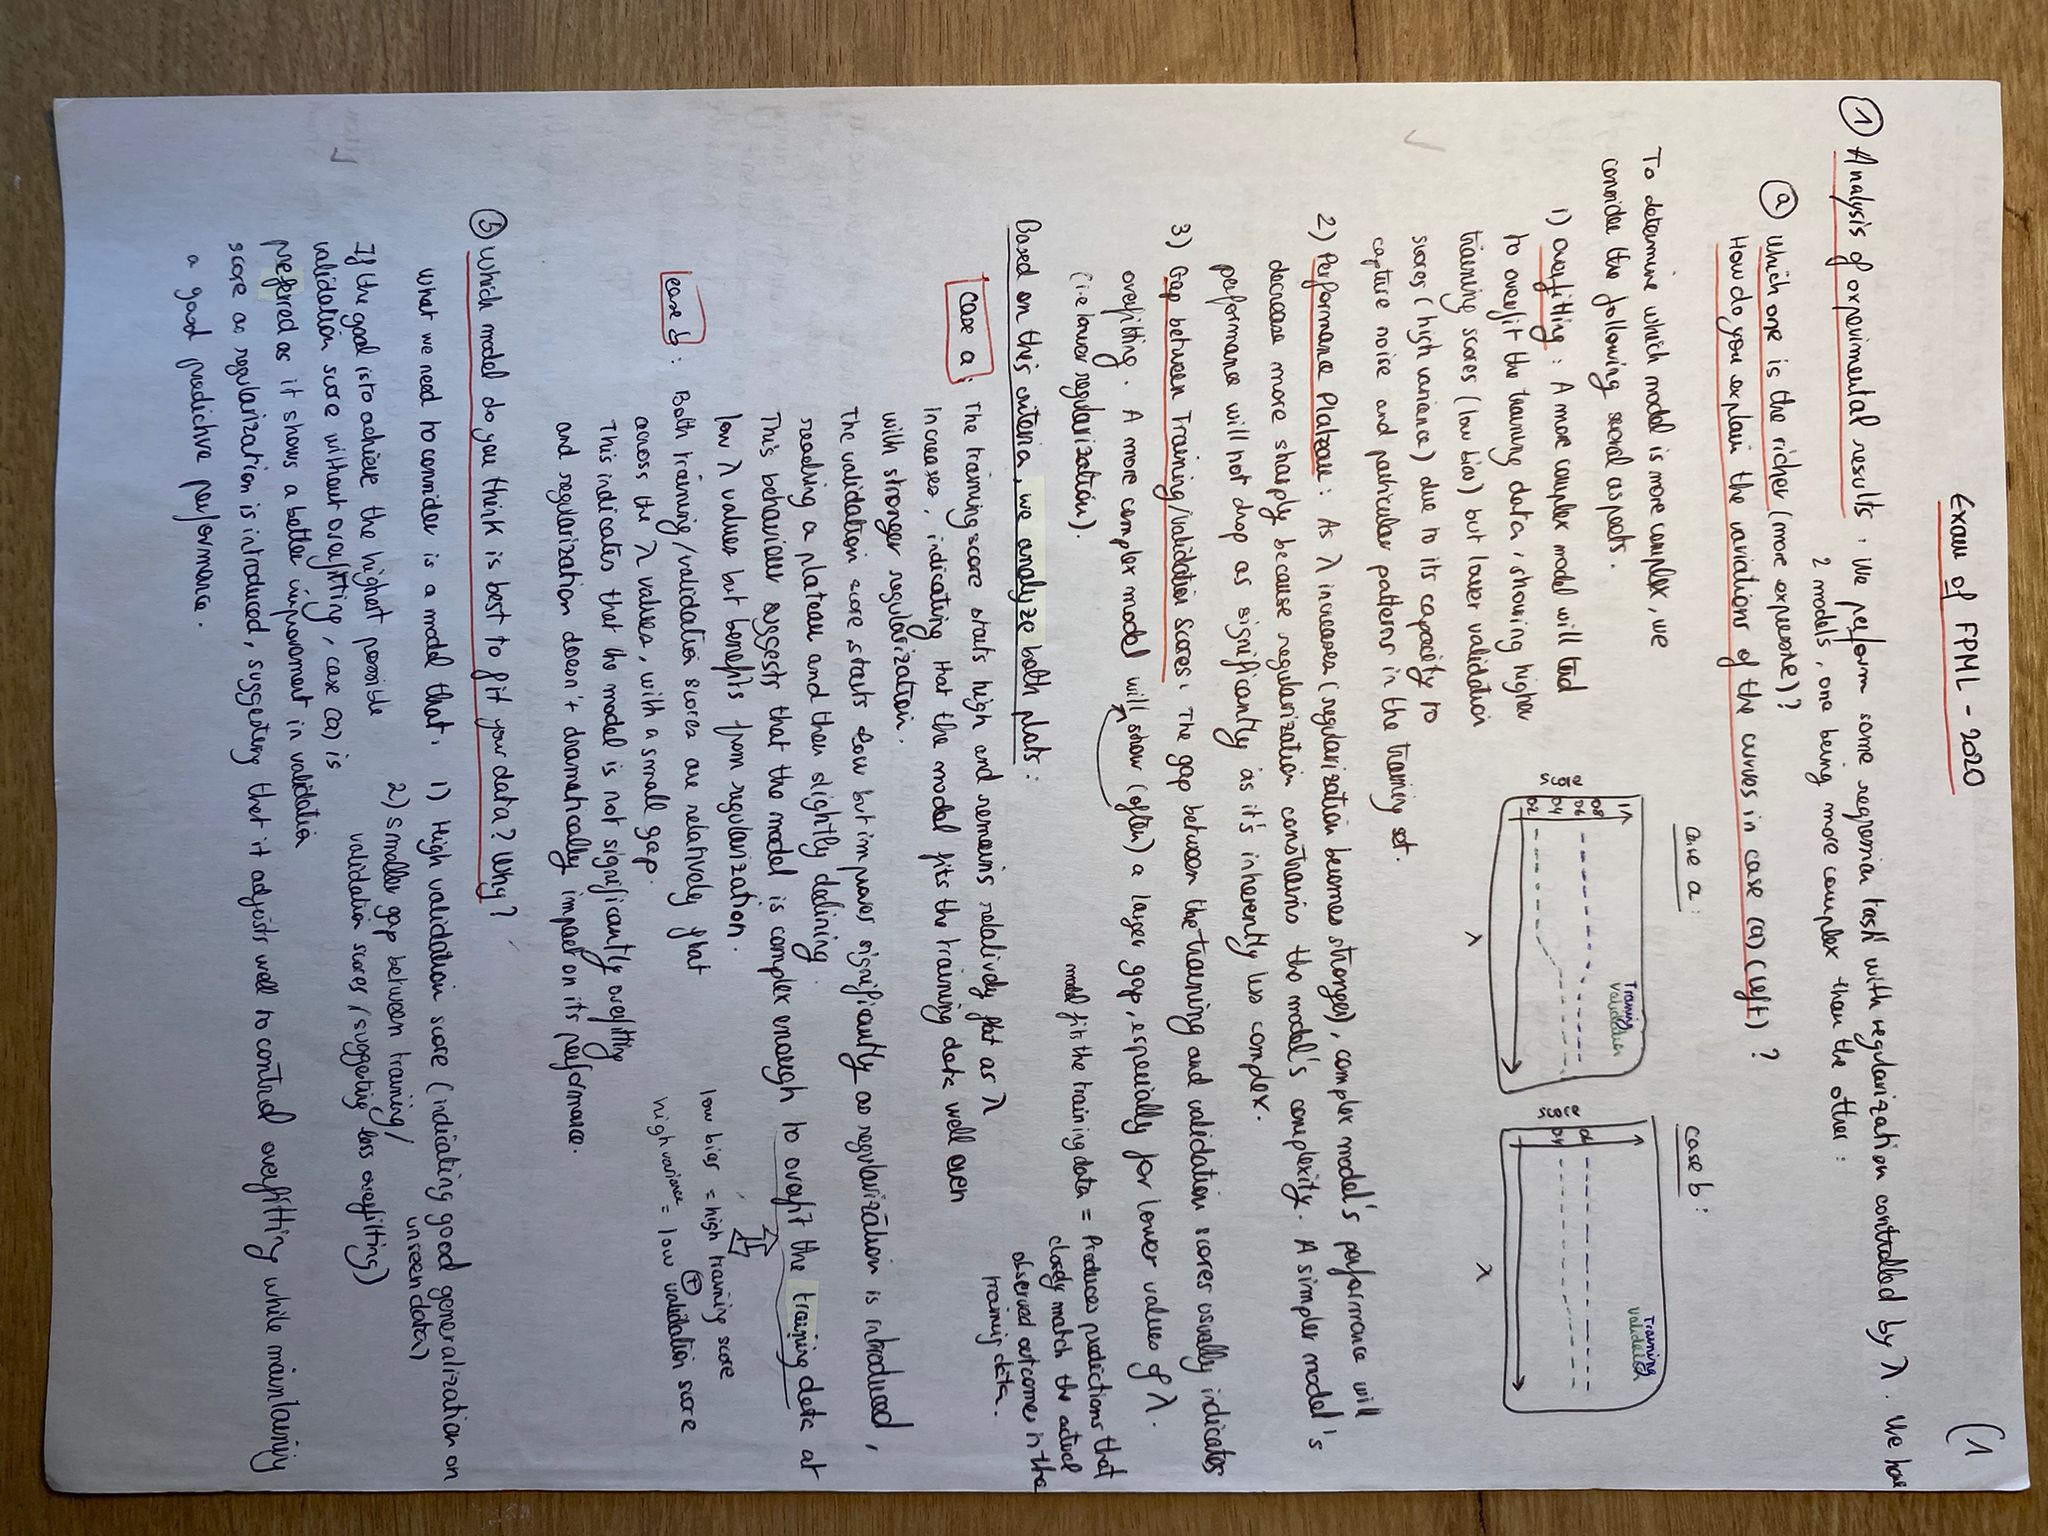 (1
Exam of FPML - 2020
① Analysis of experimental results : We perform some regression task with regularization controlled by λ. We have
2 models, one being more complex than the other :
ⓐ Which one is the richer (more expressive)?
How do you explain the variations of the curves in case (a) (left) ?
case a :
case b :
To determine which model is more complex, we
consider the following several aspects.
1) Overfitting : A more complex model will tend
to overfit the training data, showing higher
training scores (low bias) but lower validation
scores (high variance) due to its capacity to
capture noise and particular patterns in the training set.
Training
Validation
1
0.8
0.6
0.4
0.2
score
λ
Training
Validation
0.6
0.4
score
λ
2) Performance Plateau : As λ increases (regularization becomes stronger), complex model's performance will
decrease more sharply because regularization constrains the model's complexity. A simpler model's
performance will not drop as significantly as it's inherently less complex.
3) Gap between Training/Validation Scores : The gap between the training and validation scores usually indicates
overfitting. A more complex model will show (often) a larger gap, especially for lower values of λ.
(i.e lower regularization).
model fits the training data = Produces predictions that
closely match the actual
observed outcomes in the
training data.
Based on this criteria, we analyze both plots :
case a : The training score starts high and remains relatively flat as λ
increases, indicating that the model fits the training data well even
with stronger regularization.
The validation score starts low but improves significantly as regularization is introduced,
reaching a plateau and then slightly declining.
This behaviour suggests that the model is complex enough to overfit the training data at
low λ values but benefits from regularization.
low bias = high training score
+
high variance = low validation score
case b : Both training/validation scores are relatively flat
across the λ values, with a small gap.
This indicates that the model is not significantly overfitting
and regularization doesn't dramatically impact on its performance.
ⓑ Which model do you think is best to fit your data? Why?
What we need to consider is a model that : 1) High validation score (indicating good generalization on
unseen data)
2) smaller gap between training/
validation scores (suggesting less overfitting)
If the goal is to achieve the highest possible
validation score without overfitting, case (a) is
preferred as it shows a better improvement in validation
score as regularization is introduced, suggesting that it adjusts well to control overfitting while maintaining
a good predictive performance.